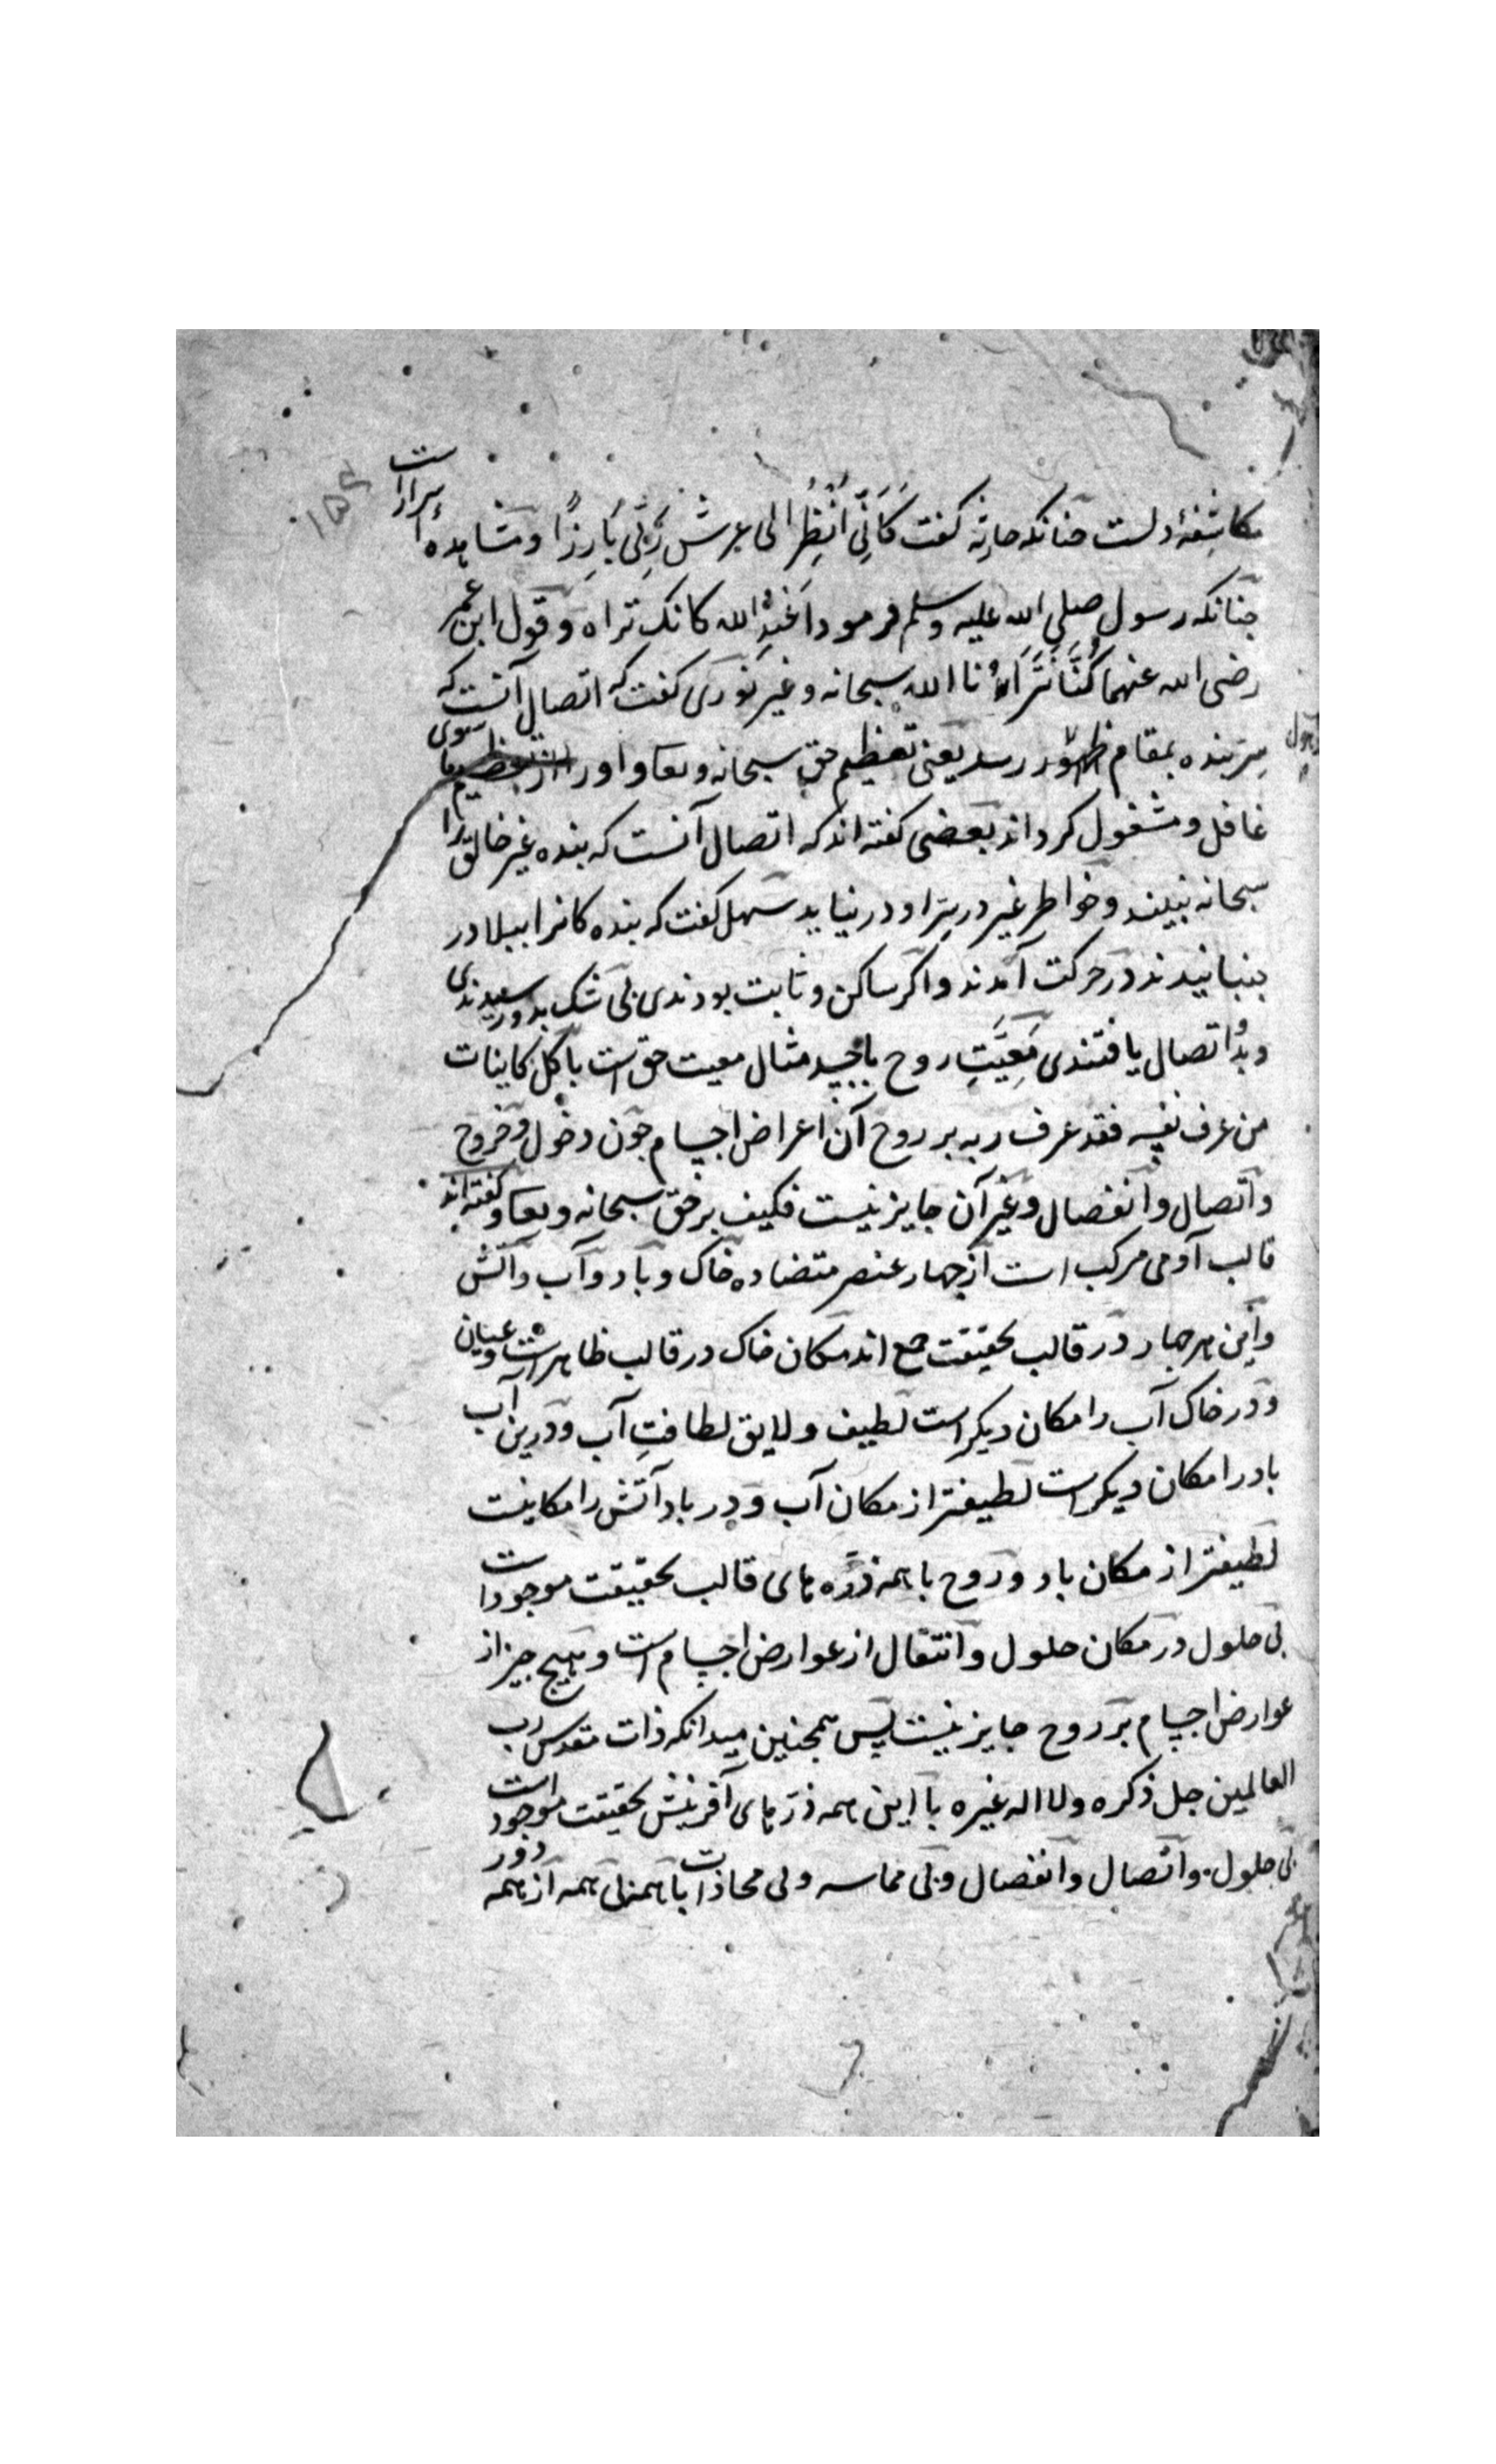 ۱۵۶
مکاشفهٔ دلست چنانکه حارثه کفت کَاَنِّی اَنْظُرُ الی عرش رَبِّی بَارِزًا و مشاهده اسرار است
چنانکه رسول صلی الله علیه وسلم فرمود اَعْبُدِ الله کانک تراه و قول ابن عمر
رضی الله عنهما کُنَّا نَتَرَاءُ نا الله سبحانه و غیر نوری کفت که اتصال آنست که
سِرّ بنده بمقام رسد یعنی تعظیم حق سبحانه و تعا و اورا از تعظیم ما سوی
غافل و مشغول کرداند بعضی کفته اند که اتصال آنست که بنده غیر خالق را
سبحانه نبیند و خواطر غیر در سِرّ او در نیاید سهل کفت که بنده کانرا ببلا در
بجنبانیدند در حرکت آمدند و اکر ساکن و ثابت بودندی بی شک بدو رسیدندی
و بدُو اتصال یافتندی مَعِیَّتِ روح با جسد مثال معیت حق است با کل کاینات
من عرف نفسه فقد عرف ربه بر روح آن اعراض اجسام چون دخول و خروج
و اتصال و انفصال و غیر آن جایز نیست فکیف بر حق سبحانه و تعا و کفته اند
قالب آدمی مرکب است از چهار عنصر متضاده خاک و باد و آب و آتش
و این هر چهار در قالب بحقیقت جمع اند مکان خاک در قالب ظاهر است و عیان
و در خاک آب را مکان دیکر است لطیف و لایق لطافتِ آب و درین آب
باد را مکان دیکر است لطیفتر از مکان آب و در باد آتش را مکانیست
لطیفتر از مکان باد و روح با همه ذرّه های قالب بحقیقت موجود است
بی حلول در مکان حلول و انتقال از عوارض اجسام است و هیچ چیز از
عوارض اجسام بر روح جایز نیست پس همچنین میدانکه ذات مقدس رب
العالمین جل ذکره ولا اله غیره با این همه ذرّهای آفرینش بحقیقت موجود است
بی حلول و اتصال و انفصال و بی مماسه و بی محاذات با همه بی همه از همه دور